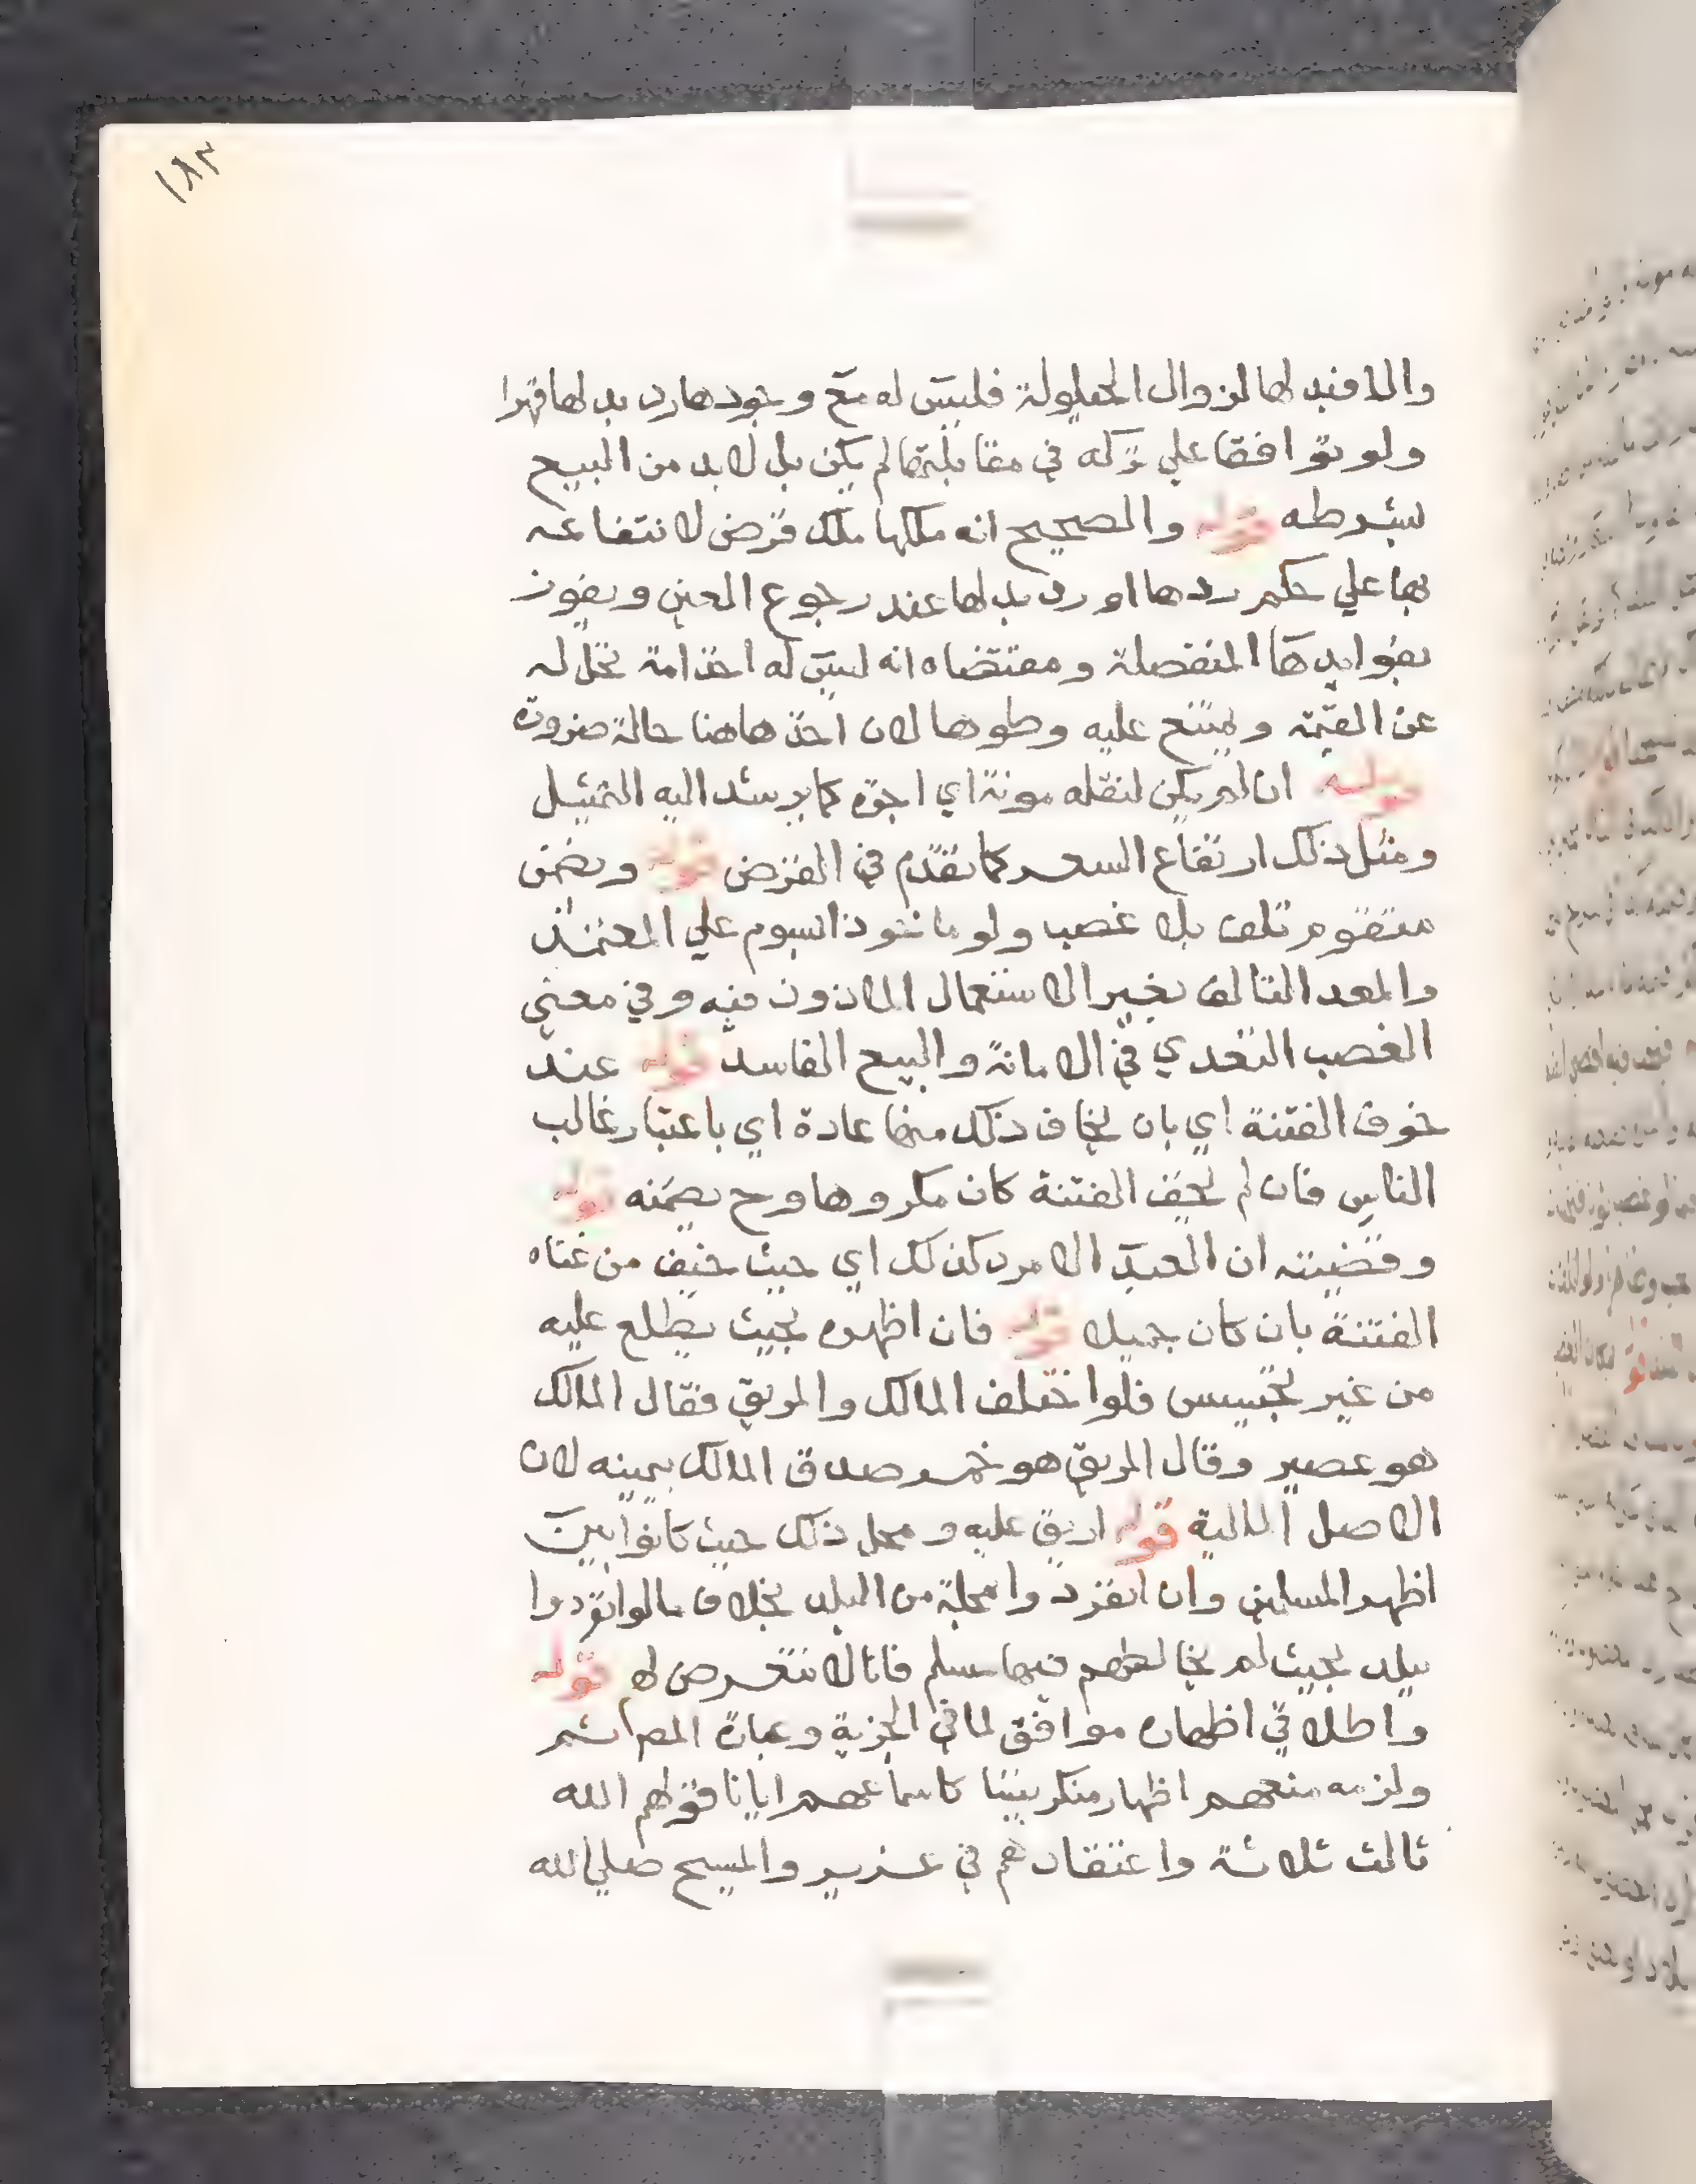 ١٨٣
والا فبدلها لزوال الحيلولة فليس له مع وجودها رد بدلها قهرا
ولو توافقا علي تركه في مقابلتها لم يكن بل لا بد من البيع
بشرطه قوله والصحيح انه ملكها ملك قرض لانتفاعه
بها علي حكم ردها او رد بدلها عند رجوع العين ويفوز
بفوايدها المنفصلة ومقتضاه انه ليس له اخذ امة تحل له
عن القيمة ويمتنع عليه وطوها لان اخذها هنا حالة ضرورة
قوله ان لم يكن لنقله مونة اي اجرة كما يرشد اليه التمثيل
ومثل ذلك ارتفاع السعر كما تقدم في القرض قوله ويضمن
متقوم تلف بلا غصب ولو ماخوذا بسوم علي المعتمد
والمعد التالف بغير الاستعمال الماذون فيه وفي معني
الغصب التعدي في الامانة والبيع الفاسد قوله عند
خوف الفتنة اي بان يخاف ذلك منها عادة اي باعتبار غالب
الناس فان لم يخف الفتنة كان مكروها وح يضمنه قوله
وقضيته ان العبد الامرد كذلك اي حيث خيف من غناه
الفتنة بان كان جميلا قوله فان اظهره بحيث يطلع عليه
من غير تجسس فلو اختلف المالك والمريق فقال المالك
هو عصير وقال المريق هو خمر صدق المالك بيمينه لان
الاصل المالية قوله اريق عليه ومحل ذلك حيث كانوا بين
اظهر المسلمين وان انفردوا بمحلة من البلد بخلاف ما لو انفردوا
ببلد بحيث لم يخالطهم فيها مسلم فانا لا نتعرض لها قوله
واطلاقي اظهاره موافق لما في الجزية وعبارة المص ثم
ولزمه منعهم اظهار منكر بيننا كاسماعهم ايانا قولهم الله
ثالث ثلاثة واعتقادهم في عزير والمسيح صلي الله